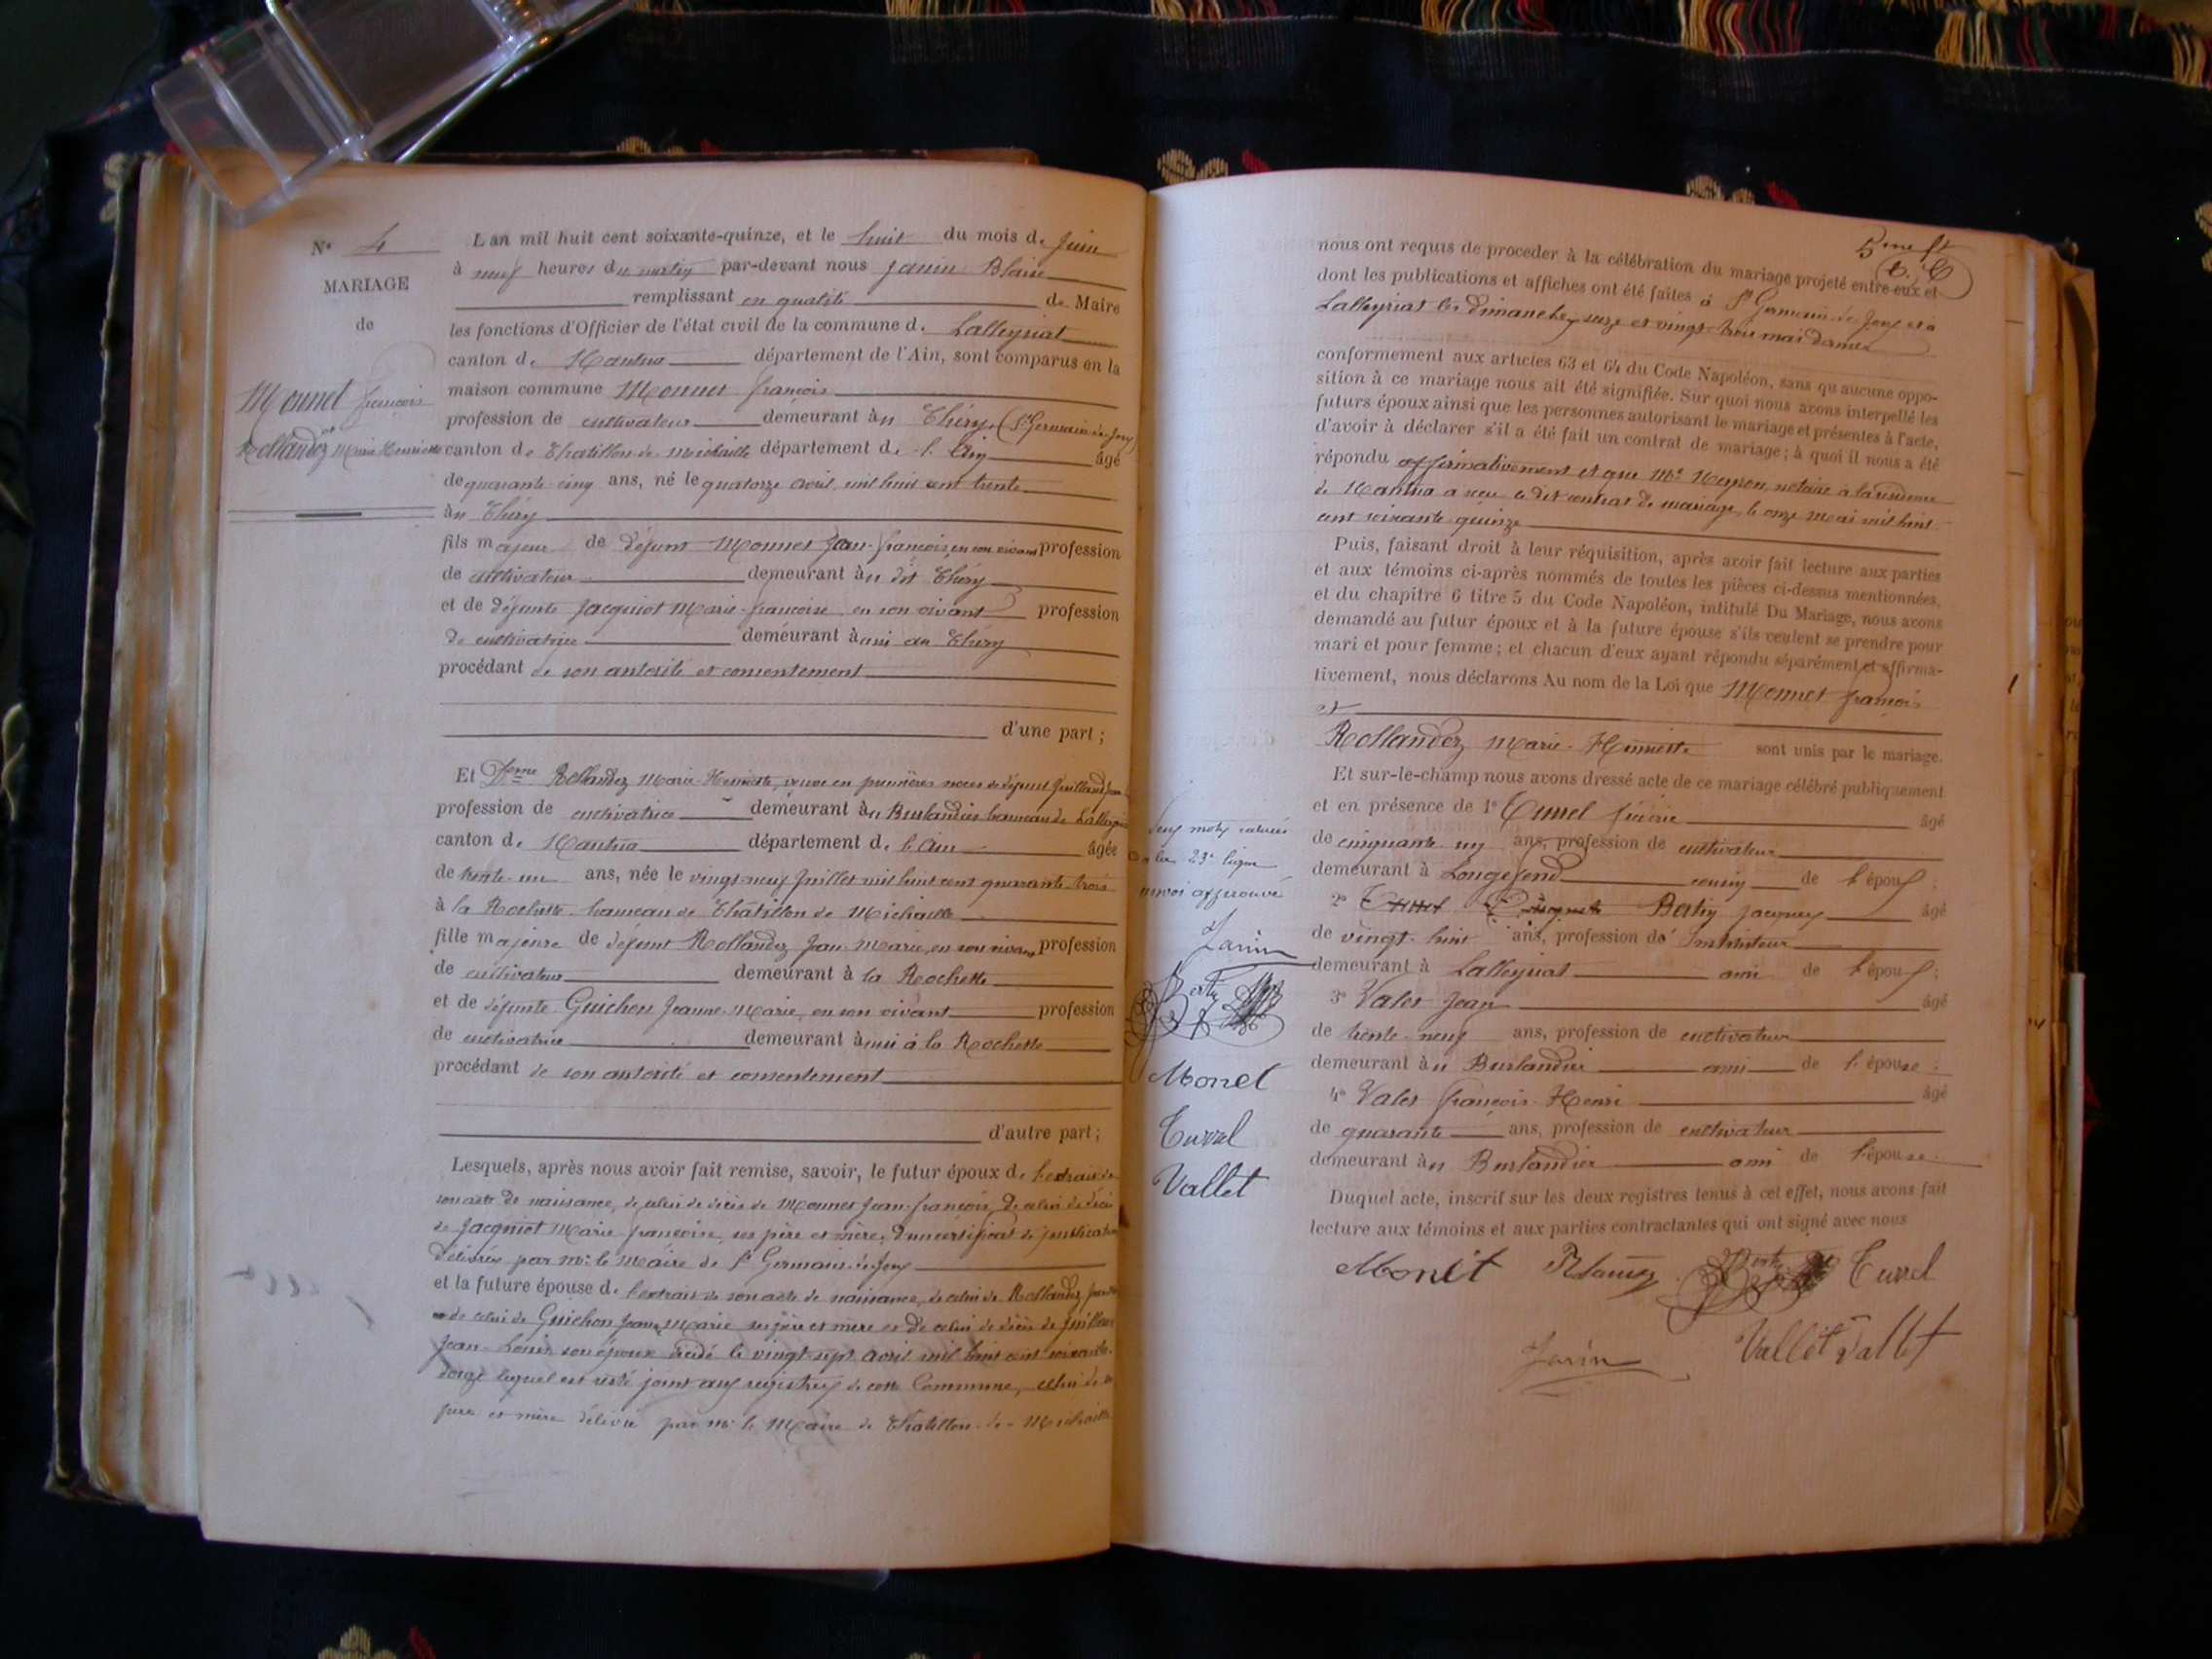 N° 4
MARIAGE
de
Monnet françois
et
Rollandez Marie Henriette
L'an mil huit cent soixante-quinze, et le huit du mois de Juin
à neuf heures du matin par-devant nous Janin Blaise
remplissant en qualité de Maire
les fonctions d'Officier de l'état civil de la commune de Lalleyriat
canton de Nantua département de l'Ain, sont comparus en la
maison commune Monnet françois
profession de cultivateur demeurant à
canton de Chatillon de Michaille département de l'Ain âgé
de quarante cinq ans, né le quatorze avril mil huit cent trente
fils majeur de défunt Monnet Jean-françois, en son vivant profession
de cultivateur demeurant à
et de défunte Jacquiot Marie-françoise en son vivant profession
de cultivatrice demeurant
procédant de son autorité et consentement
d'une part ;
Et Dame Rollandez Marie-Henriette, veuve en premières noces de défunt
profession de cultivatrice demeurant à
canton de Nantua département de l'Ain âgée
de trente-un ans, née le vingt-neuf Juillet mil huit cent quarante-trois
à la Rochette hameau de Châtillon de Michaille
fille majeure de défunt Rollandez Jean-Marie, en son vivant profession
de cultivateur demeurant à la Rochette
et de défunte Guichon Jeanne-Marie, en son vivant profession
de cultivatrice demeurant aussi à la Rochette
procédant de son autorité et consentement
d'autre part ;
Lesquels, après nous avoir fait remise, savoir, le futur époux de l'extrait de
son acte de naissance, de celui de décès de Monnet Jean-françois, de celui de décès
de Jacquiot Marie françoise, ses père et mère, d'un certificat de publication
délivrés par Mr le Maire de St Germain-de-Joux
et la future épouse de l'extrait de son acte de naissance, de celui de Rollandez
de celui de Guichon Jeanne Marie ses père et mère et de celui de décès de
Jean-Louis son époux décédé le vingt-sept avril mil huit cent soixante-
lequel est resté joint aux registres de cette Commune, celui de
père et mère délivré par Mr le Maire de Chatillon-de-Michaille
nous ont requis de procéder à la célébration du mariage projeté entre eux et
dont les publications et affiches ont été faites à St Germain-de-Joux et à
Lalleyriat les Dimanches seize et vingt-trois mai dernier
conformément aux articles 63 et 64 du Code Napoléon, sans qu'aucune oppo-
sition à ce mariage nous ait été signifiée. Sur quoi nous avons interpellé les
futurs époux ainsi que les personnes autorisant le mariage et présentes à l'acte,
d'avoir à déclarer s'il a été fait un contrat de mariage ; à quoi il nous a été
répondu affirmativement et que Me notaire à la résidence
de Nantua a reçu le dit contrat de mariage, le onze Mai mil huit
cent soixante-quinze
Puis, faisant droit à leur réquisition, après avoir fait lecture aux parties
et aux témoins ci-après nommés de toutes les pièces ci-dessus mentionnées,
et du chapitre 6 titre 5 du Code Napoléon, intitulé Du Mariage, nous avons
demandé au futur époux et à la future épouse s'ils veulent se prendre pour
mari et pour femme ; et chacun d'eux ayant répondu séparément et affirma-
tivement, nous déclarons Au nom de la Loi que Monnet françois
et
Rollandez Marie-Henriette sont unis par le mariage.
Et sur-le-champ nous avons dressé acte de ce mariage célébré publiquement
et en présence de 1° Turrel âgé
de cinquante un ans, profession de cultivateur
demeurant à Longefond cousin de l'époux ;
2° Bertin Jacques âgé
de vingt-huit ans, profession de Instituteur
demeurant à Lalleyriat ami de l'époux ;
3° Valet Jean âgé
de trente-neuf ans, profession de cultivateur
demeurant au Burlandier ami de l'épouse ;
4° Valet françois-Henri âgé
de quarante ans, profession de cultivateur
demeurant au Burlandier ami de l'épouse.
Duquel acte, inscrit sur les deux registres tenus à cet effet, nous avons fait
lecture aux témoins et aux parties contractantes qui ont signé avec nous
Monet Turrel
Janin Vallet Vallet
mots raturés
23e ligne
approuvé
Janin
Monet
Turrel
Vallet